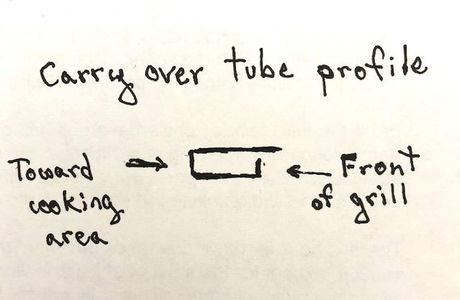 Carry over tube profile
Toward
cooking
area
Front
of grill